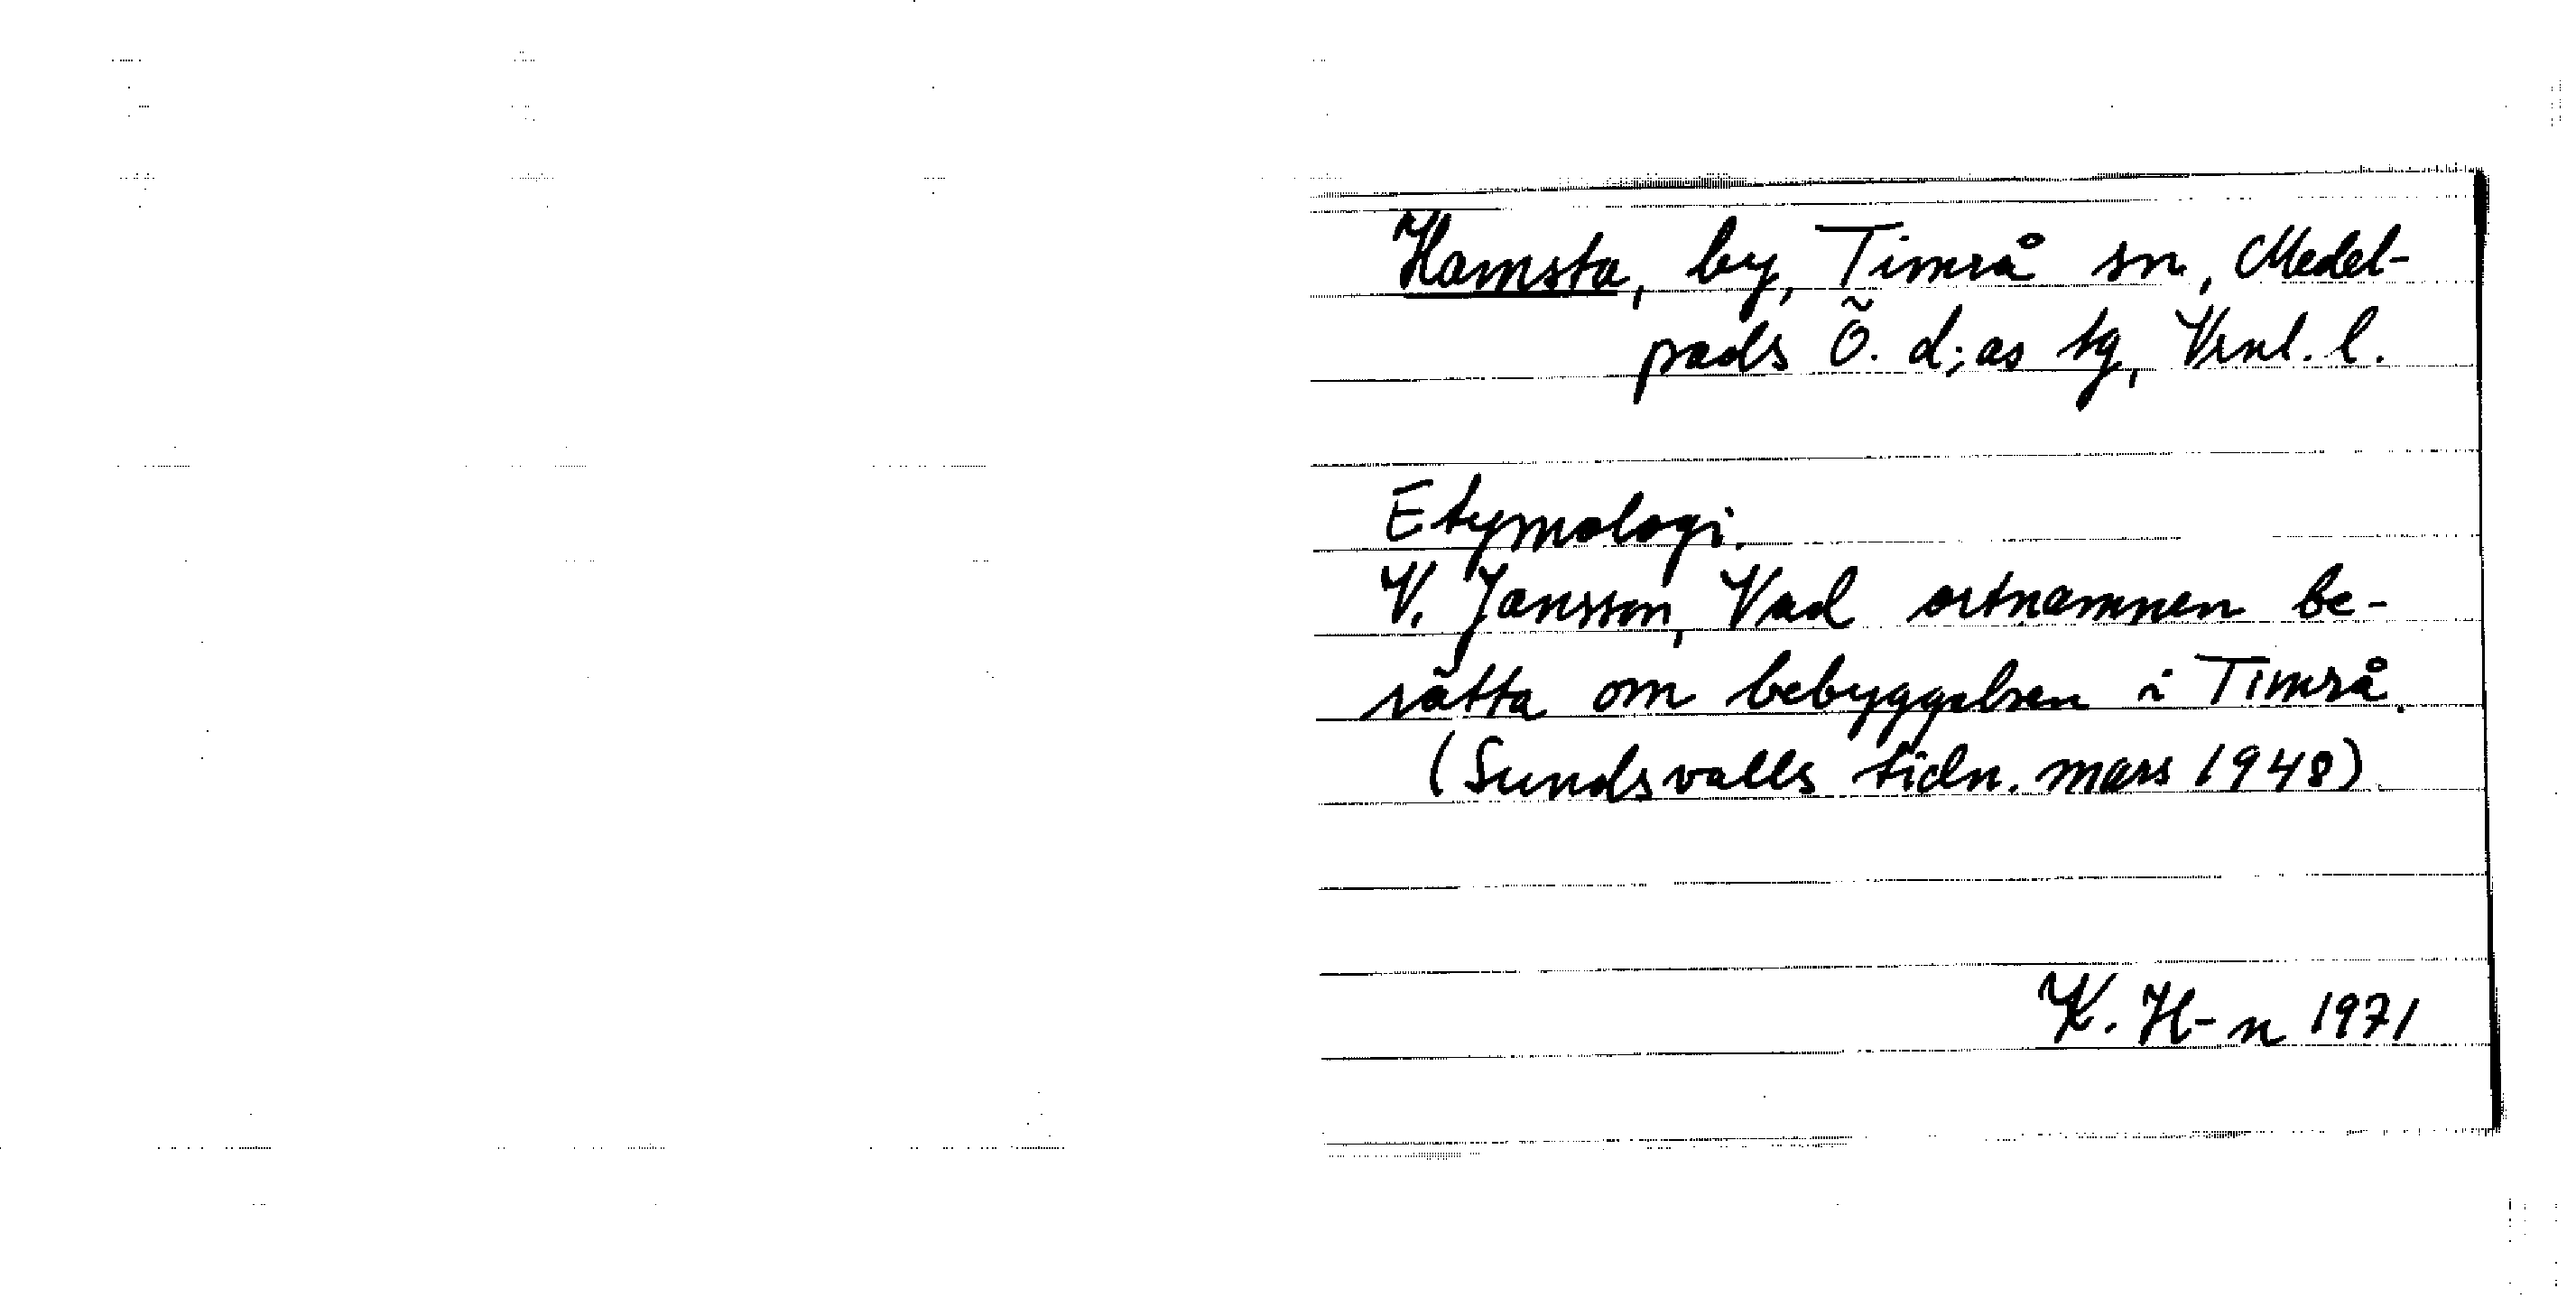 Hamsta, by, Timrå sn, Medel-
pads Ö. d:as tg, Vrnl. l.
Etymologi.
V. Jansson, Vad ortnamnen be-
rätta om bebyggelsen i Timrå.
(Sundsvalls tidn. mars 1948).
K. H-n 1971